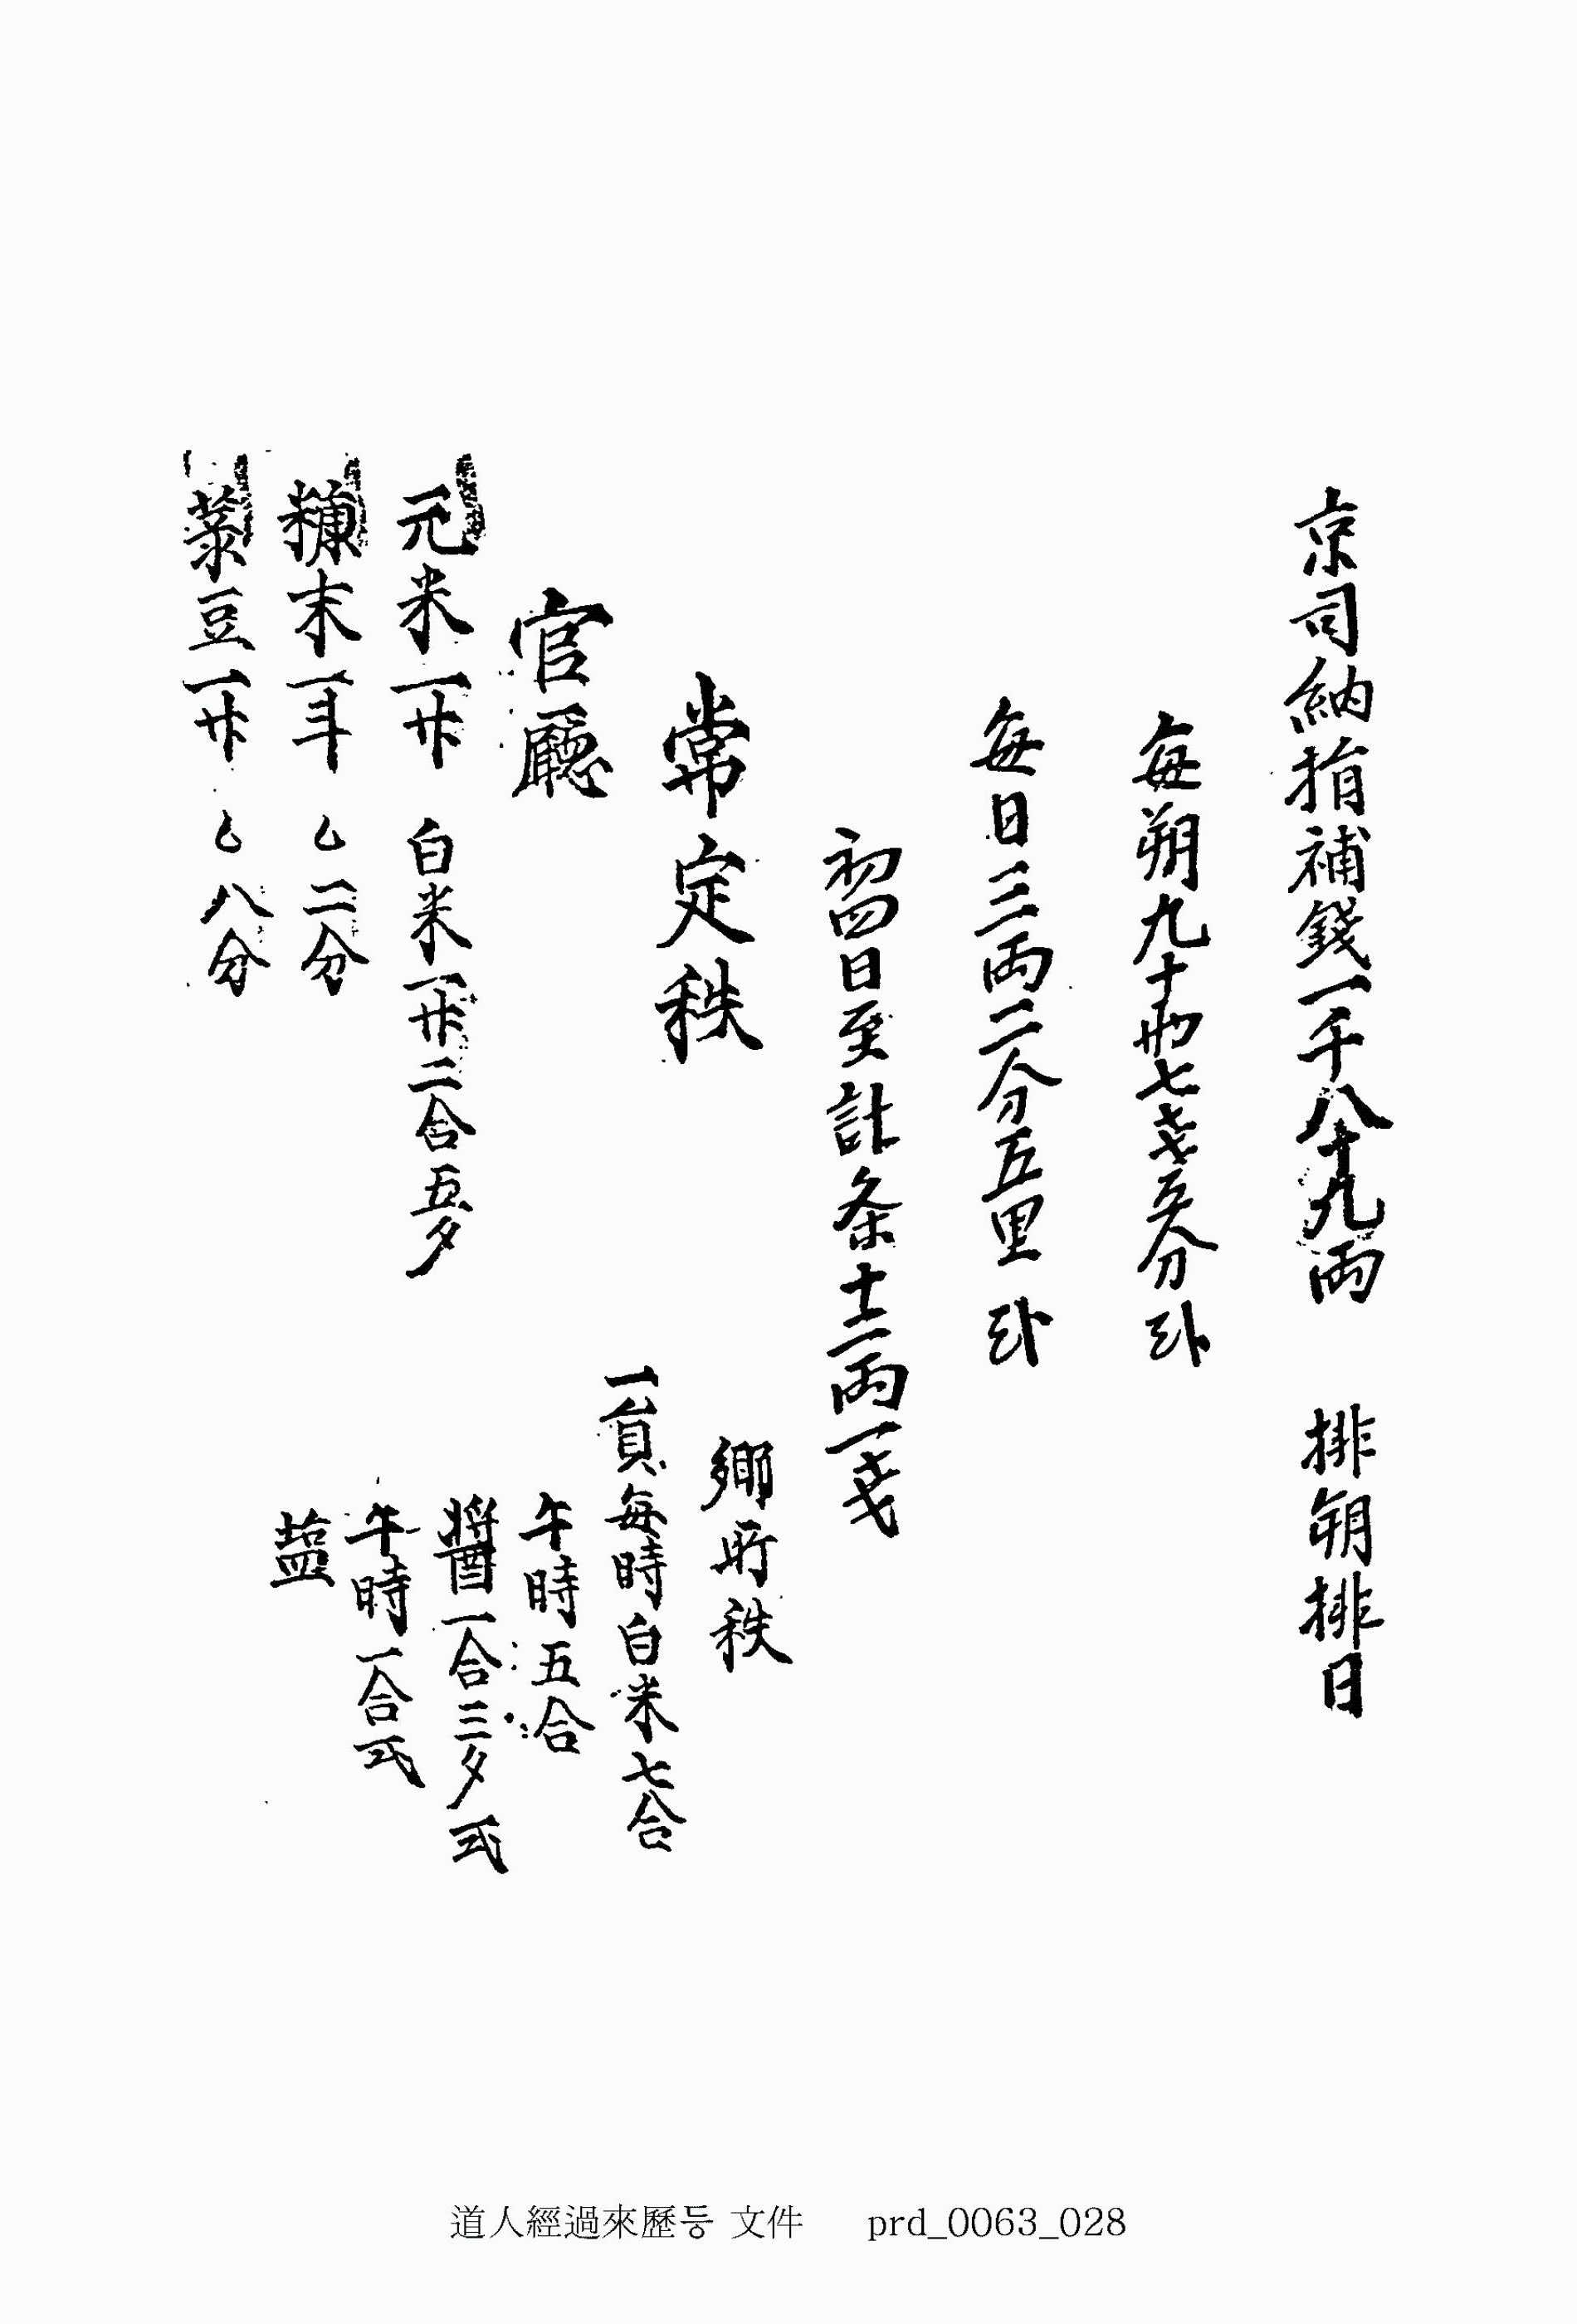 京司納捐補錢一千八十九兩 排朔排日
每朔九十兩七戔五分 卦
每日三兩二分五里 卦
初四日至計条十二兩一戔
常定秩
官廳
元米一升 白米一升二合五夕
糠末一斗 乙二分
菉豆一升 乙八分
鄕所秩
一員每時白米七合
午時五合
醬一合三夕式
午時一合式
塩
道人經過來歷등 文件 prd_0063_028